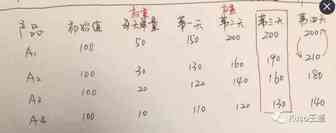 产品 初始值 每天增量 第一天 第二天 第三天 第四天
A1 100 50 150 200 200 200
A2 100 30 130 160 190 210
A3 100 20 120 140 160 180
A4 100 10 110 120 130 140